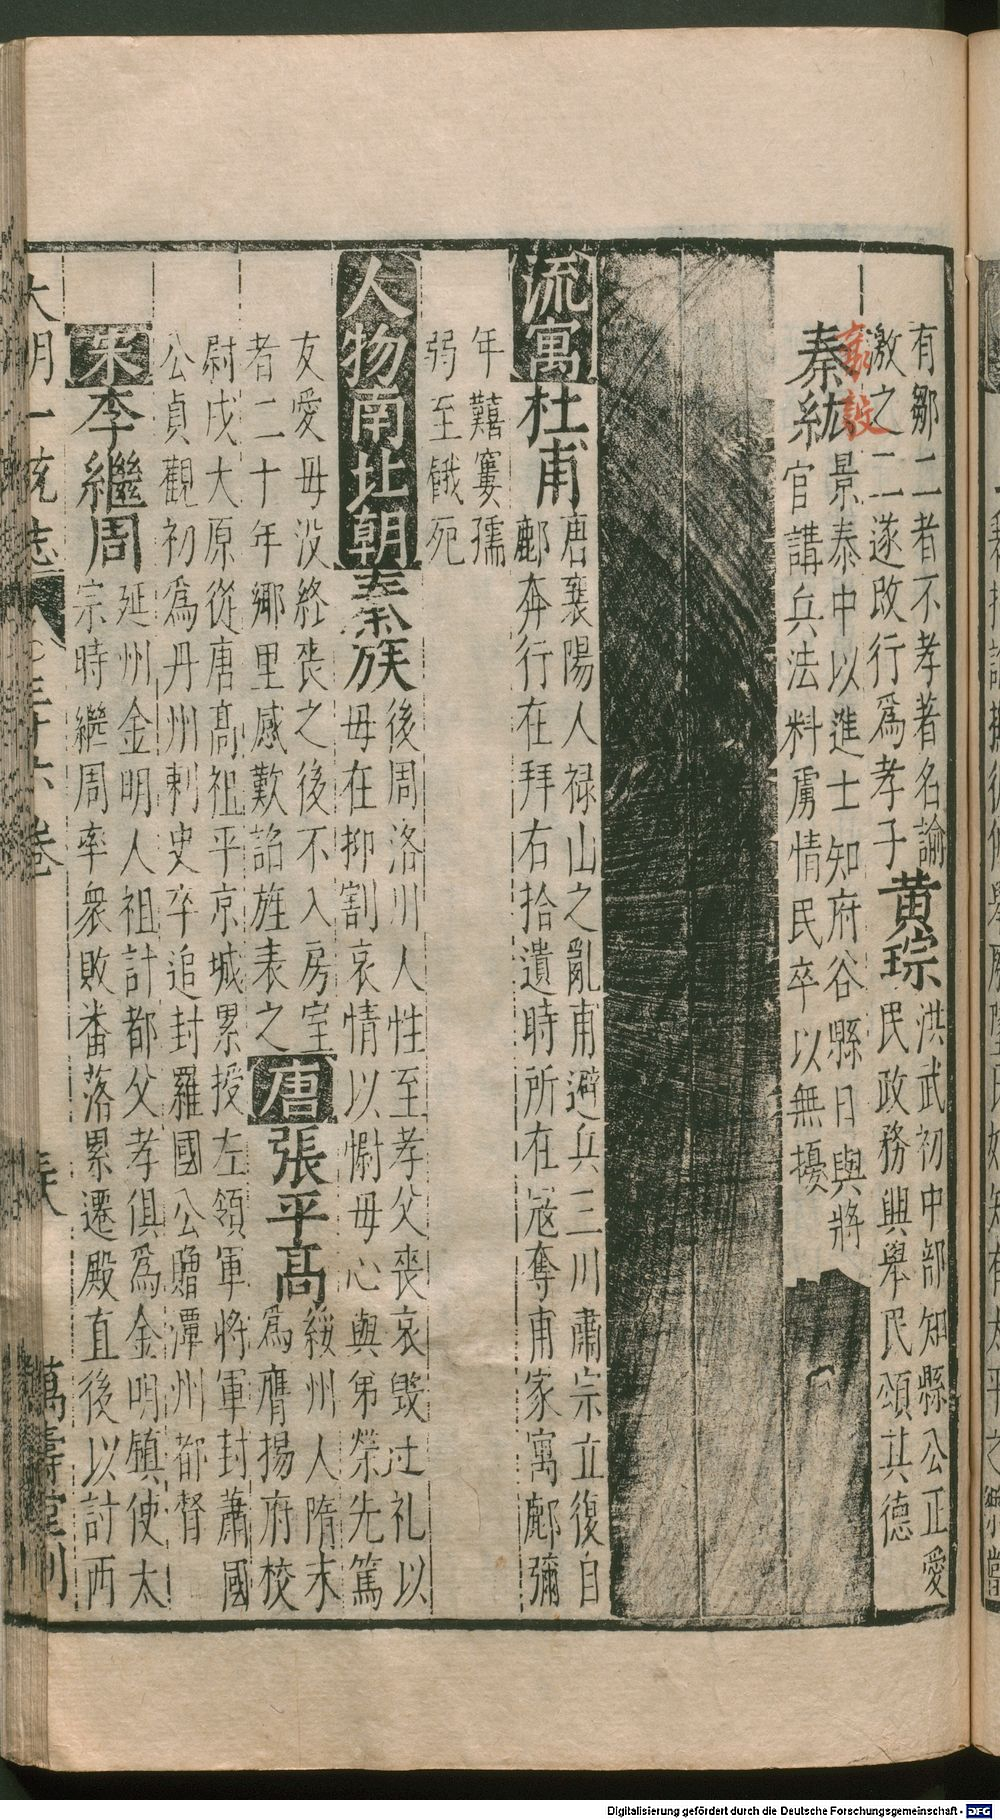 有鄒二者不孝著名諭
激之二遂改行爲孝子黄琮洪武初中部知縣公正愛
民政務興舉民頌其德
秦紘景泰中以進士知府谷縣日與將
官講兵法料虜情民卒以無擾
流寓杜甫唐襄陽人禄山之亂甫避兵三川肅宗立復自
鄜奔行在拜右拾遺時所在冦奪甫家寓鄜彌
年囏窶孺
弱至餓死
人物南北朝秦族後周洛川人性至孝父喪哀毁过礼以
母在抑割哀情以慰母心與弟榮先篤
友愛母没終喪之後不入房室
者二十年鄉里感歎詔旌表之唐張平高綏州人隋末
爲鷹揚府校
尉戍大原從唐高祖平京城累授左領軍將軍封蕭國
公貞觀初爲丹州刺史卒追封羅國公贈潭州都督
宋李繼周延州金明人祖計都父孝俱爲金明鎮使太
宗時繼周率衆敗番落累遷殿直後以討西
大明一统志 三十六卷 萬壽堂刊
Digitalisierung gefördert durch die Deutsche Forschungsgemeinschaft - DFG